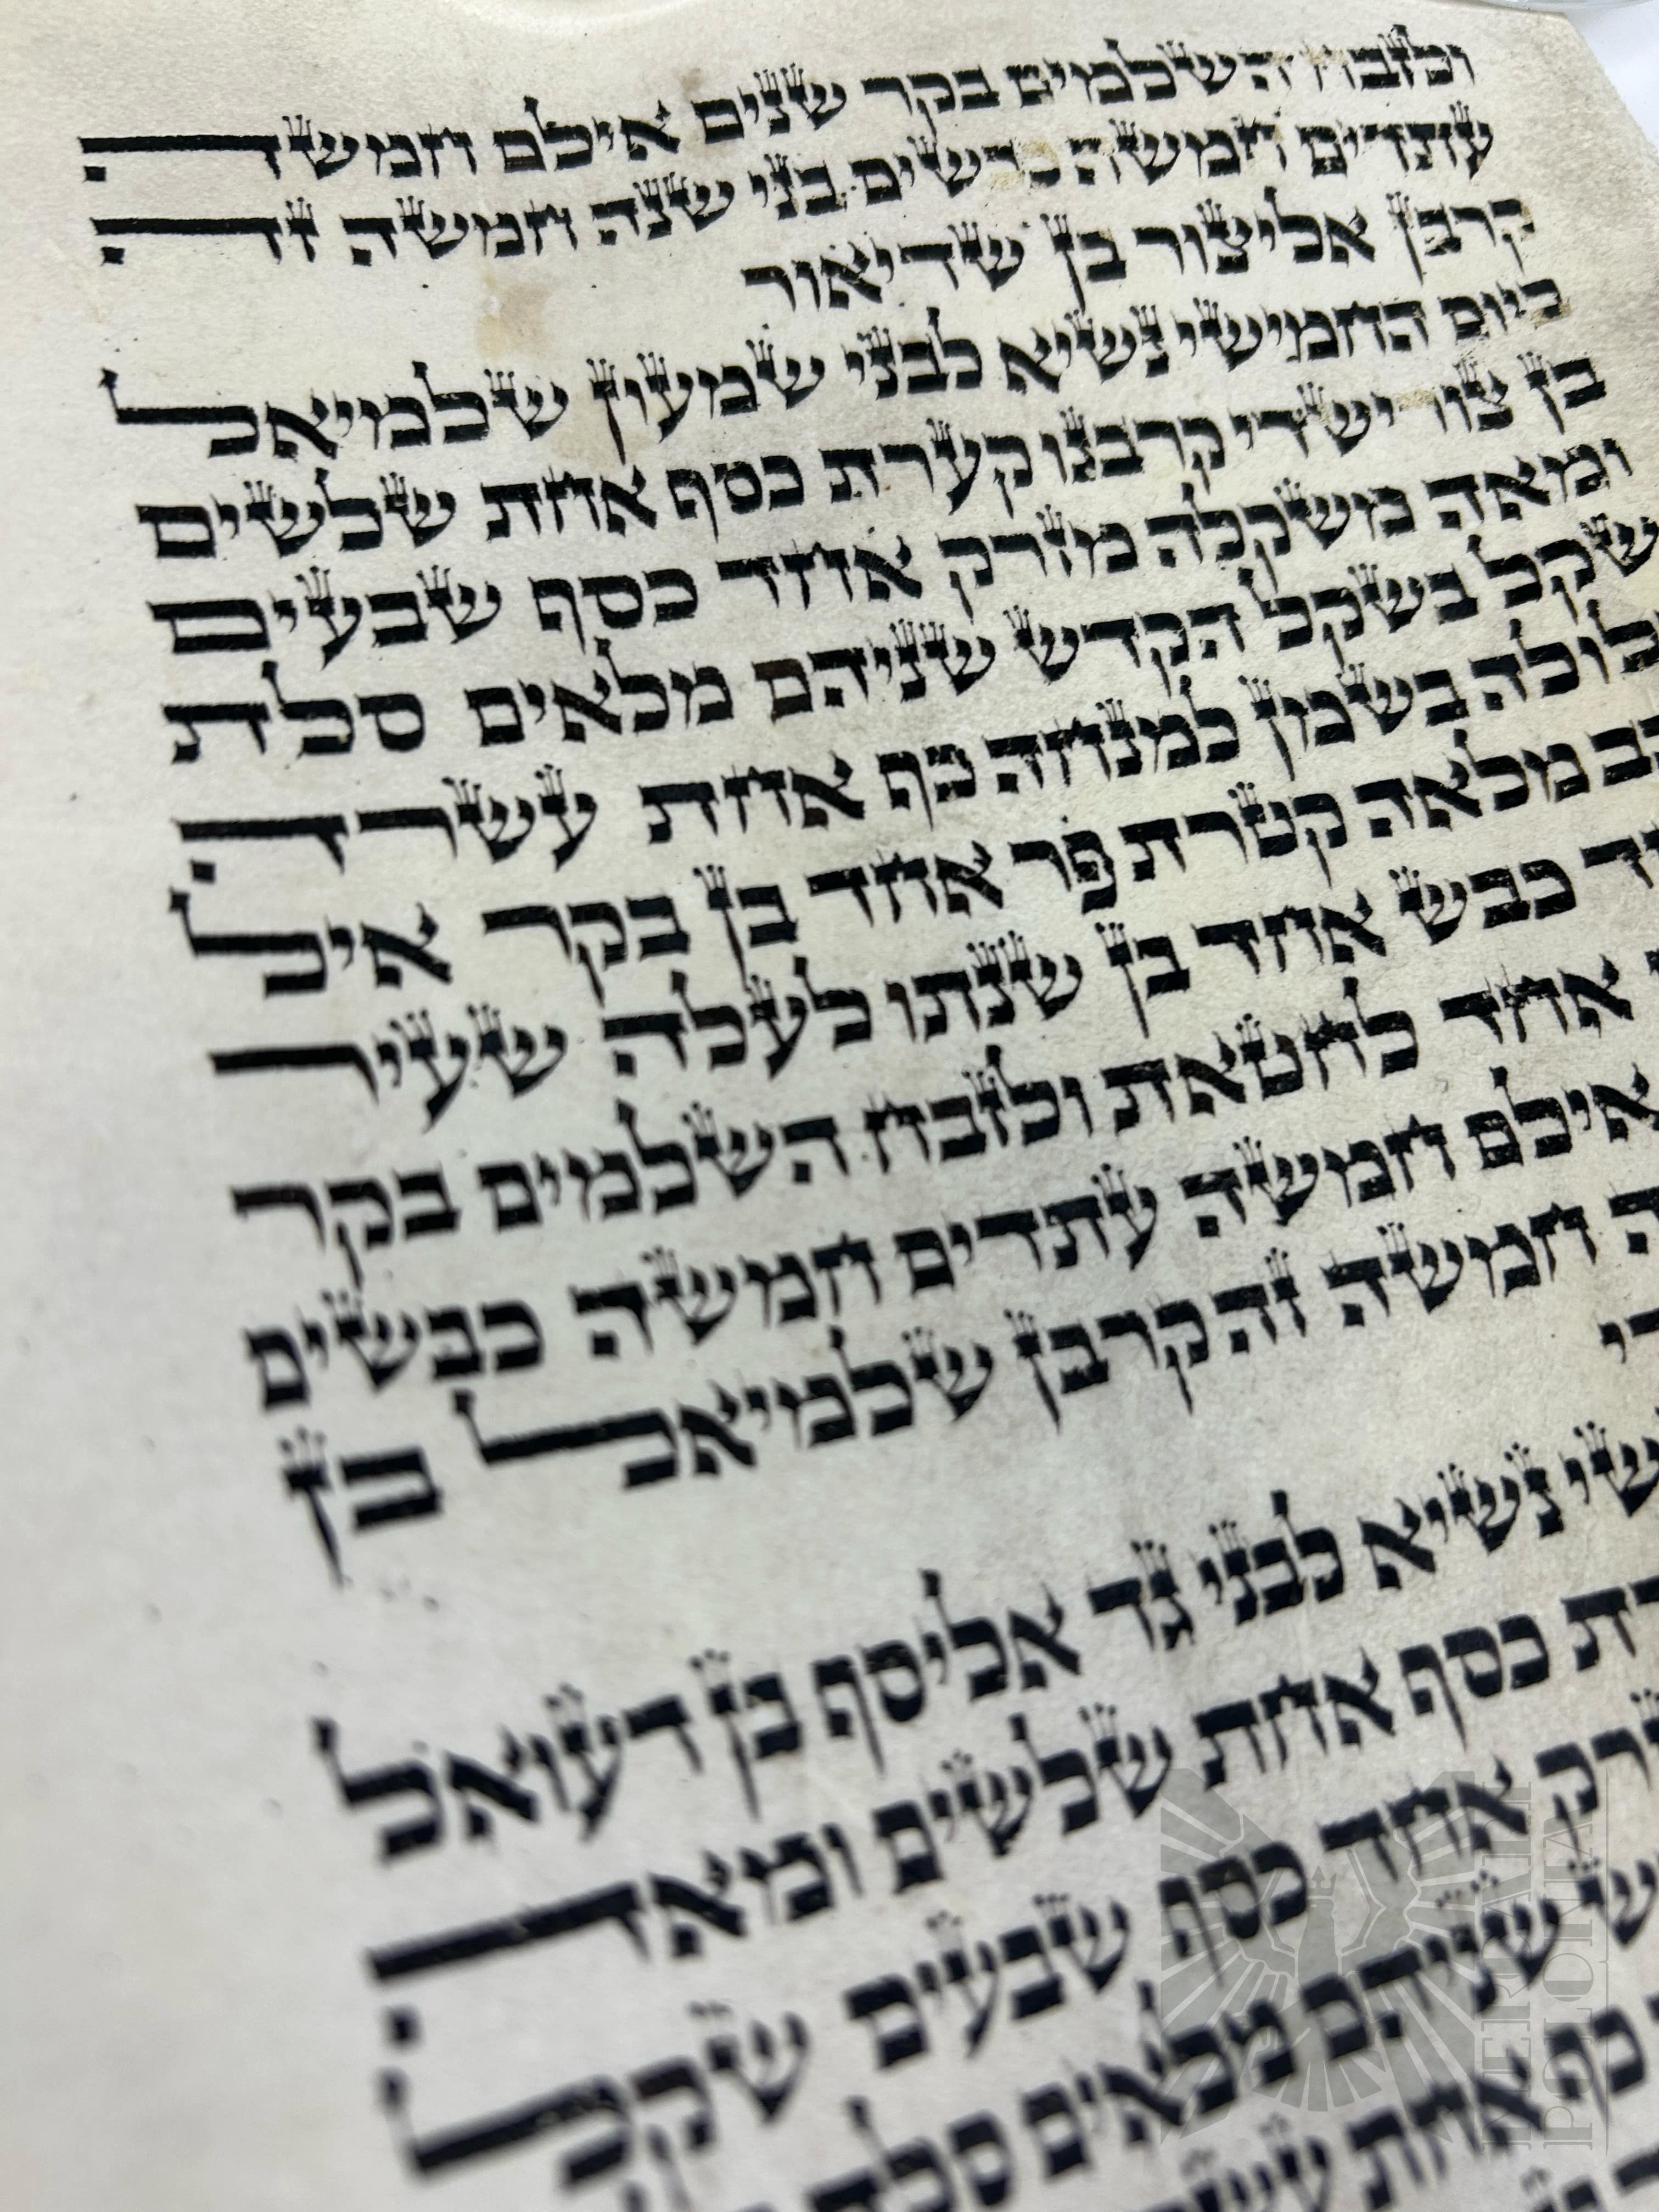 ולזבח השלמים בקר שנים אילם חמשה
עתדים חמשה כבשים בני שנה חמשה זה
קרבן אליצור בן שדיאור
ביום החמישי נשיא לבני שמעון שלמיאל
בן צורישדי קרבנו קערת כסף אחת שלשים
ומאה משקלה מזרק אחד כסף שבעים
שקל בשקל הקדש שניהם מלאים סלת
בלולה בשמן למנחה כף אחת עשרה
זהב מלאה קטרת פר אחד בן בקר איל
אחד כבש אחד בן שנתו לעלה שעיר
אחד לחטאת ולזבח השלמים בקר
אילם חמשה עתדים חמשה כבשים
חמשה זה קרבן שלמיאל בן
נשיא לבני גד אליסף בן דעואל
כסף אחת שלשים ומאה
אחד כסף שבעים שקל
שניהם מלאים סלת
כף אחת
INTER ALIA
POLONEA